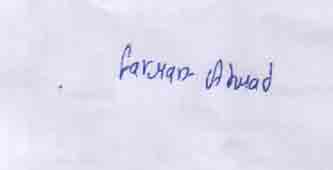 Farman Ahmad